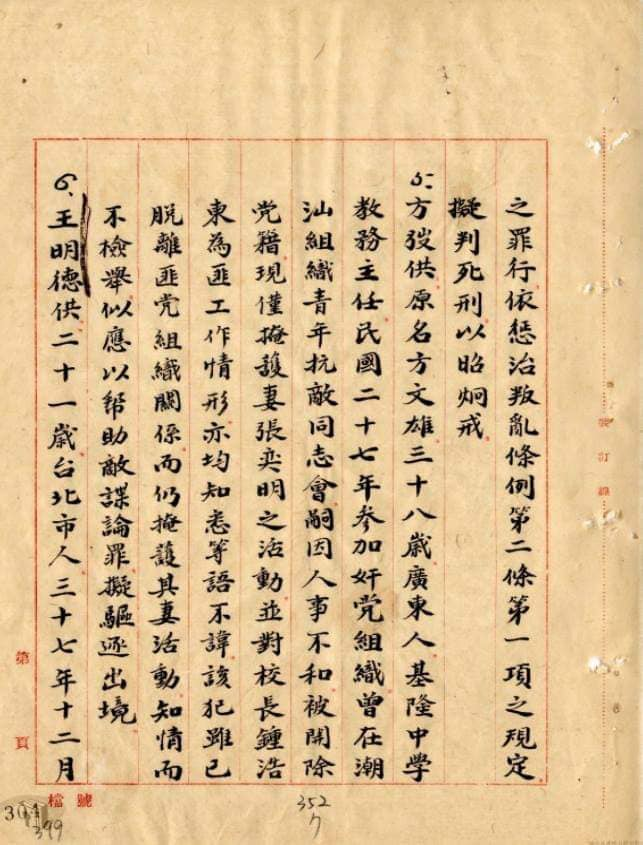 之罪行依惩治叛亂條例第二條第一項之規定
擬判死刑以昭炯戒
5.方弢供原名方文雄三十八歲廣東人基隆中學
教務主任民國二十七年參加奸党組織曾在潮
汕組織青年抗敵同志會嗣因人事不和被開除
党籍現僅掩護妻張奕明之活動並對校長鍾浩
東為匪工作情形亦均知悉等語不諱該犯雖已
脱離匪党組織關係而仍掩護其妻活動知情而
不檢舉似應以幫助敵諜論罪擬驅逐出境
6.王明德供二十一歲台北市人三十七年十二月
裝訂線
第頁
檔號
304
399
352